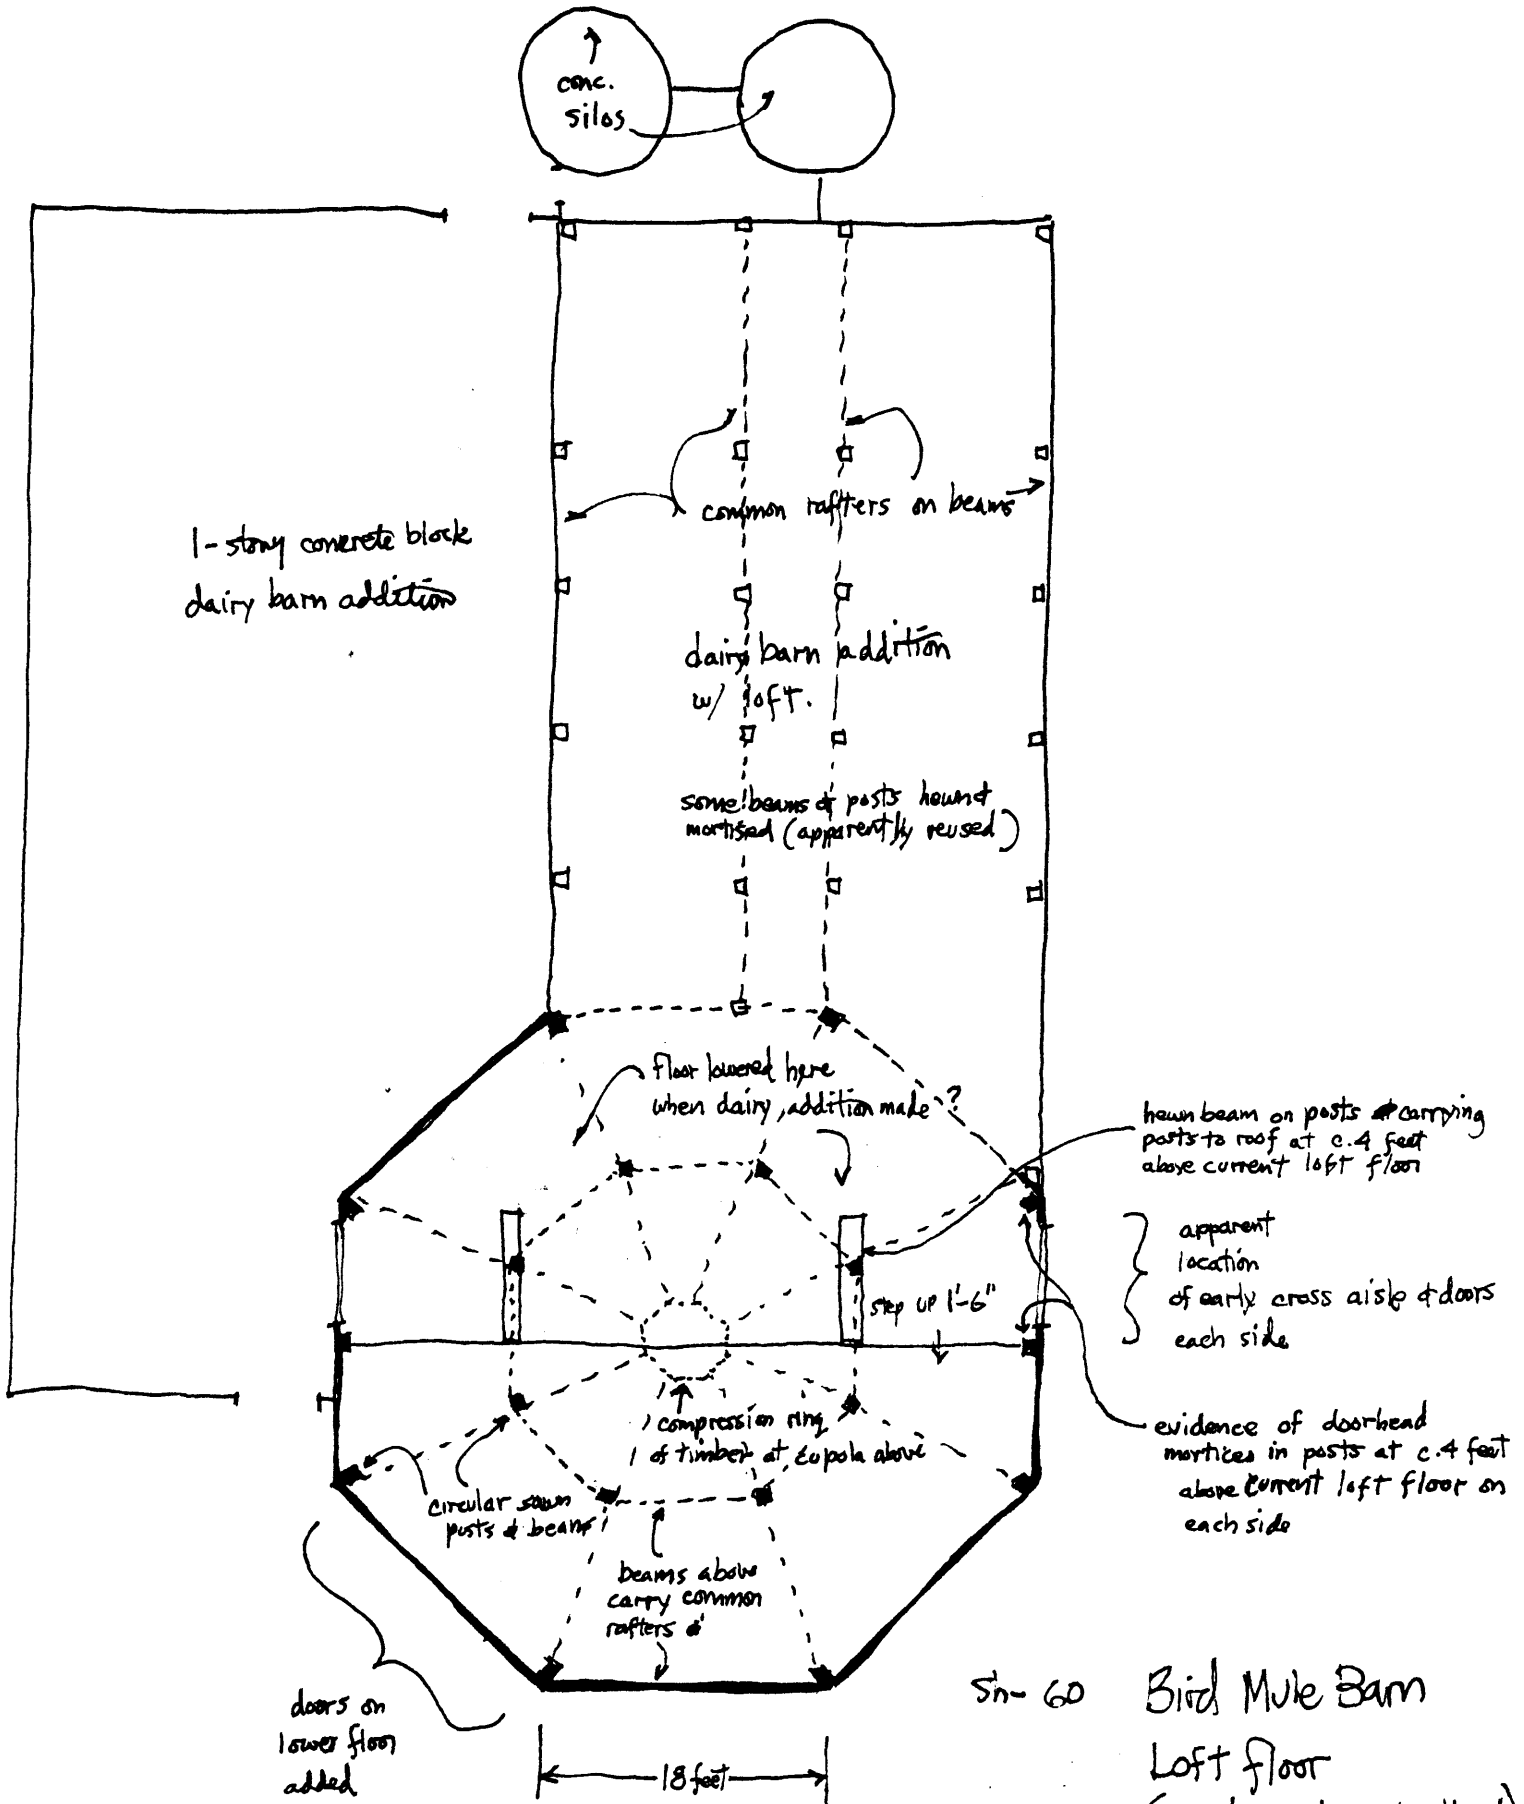 conc.
silos
common rafters on beams
1-story concrete block
dairy barn addition
dairy barn addition
w/ loft.
some beams & posts hewn &
mortised (apparently reused)
floor lowered here
when dairy addition made?
hewn beam on posts & carrying
posts to roof at c.4 feet
above current loft floor
apparent
location
of early cross aisle & doors
each side
step up 1'-6"
compression ring
of timber at cupola above
evidence of doorhead
mortices in posts at c.4 feet
above current loft floor on
each side
circular sawn
posts & beams
beams above
carry common
rafters &
doors on
lower floor
added
18 feet
Sh-60 Bird Mule Barn
Loft floor